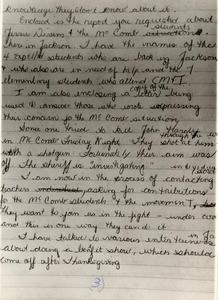 knowledge they don't know about it.
Enclosed is the report you requested about
students
Jessie Divens & the Mc Comb situation
here in Jackson. I have the names of the
4 expelled students who are back in Jackson
& who also are in need of help and the 7
elementary students who attend CMI.
copy of the
I am also enclosing a letter being
used to answer those who wrote expressing
their concern for the Mc Comb situation.
Some one tried to kill John Hardy
through the
in Mc Comb Friday Night. They shot at him
with a shotgun. Fortunately their aim was
off. The struggle is "enough going"
I am now in the process of contacting
teachers asking for contributions
for the Mc Comb students & the movement,
they want to join us in the fight - under
and this is one way they can do it.
I have talked to various entertainers
about doing a benefit school, which should
come off after Thanksgiving
3